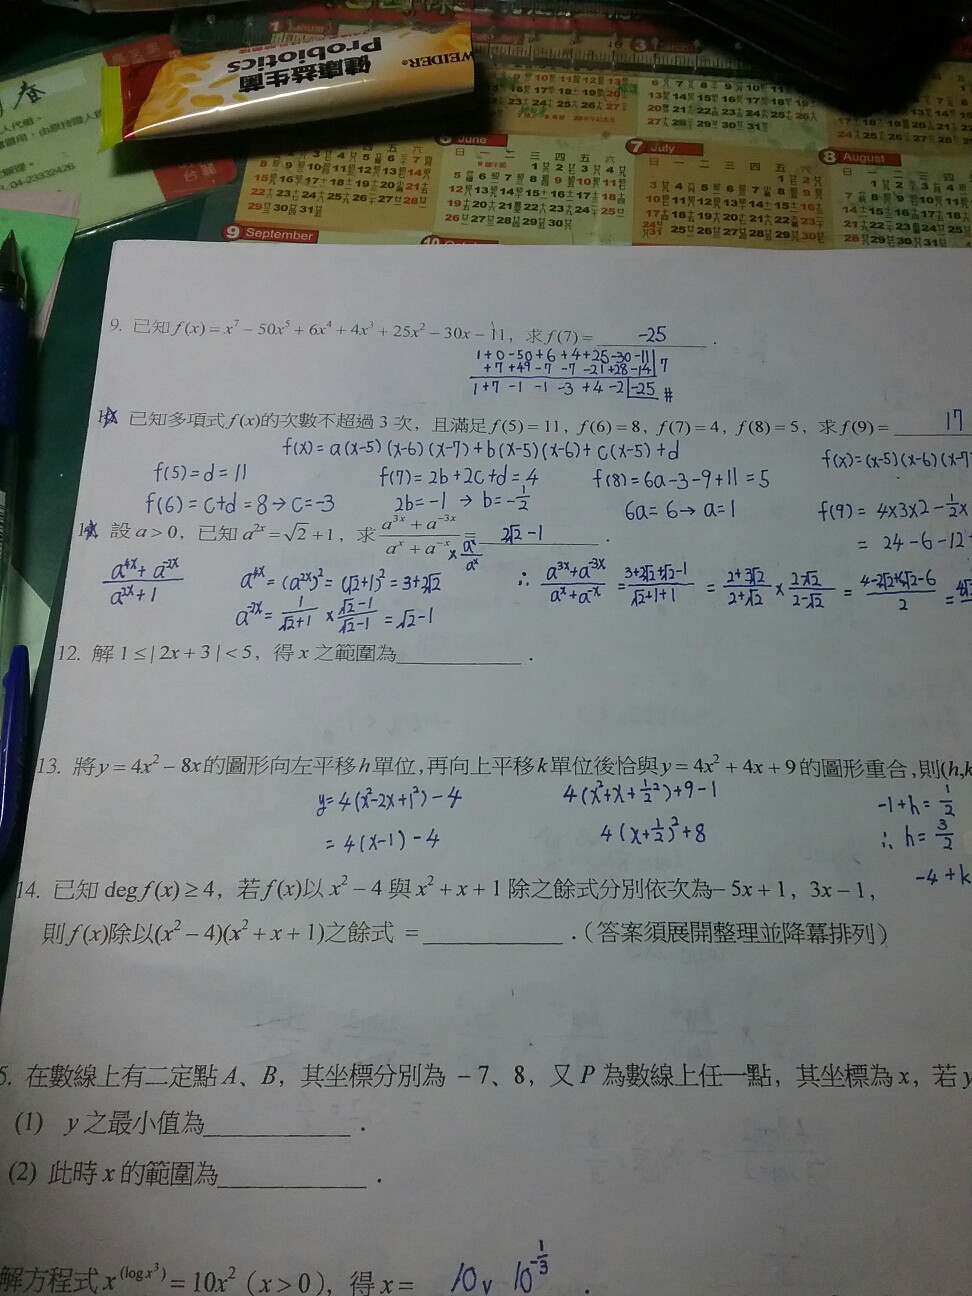 WEIDER®
健康益生菌
Probiotics
台灣
04-23332426
1 January
3
6 June
7 July
8 August
9 September
9. 已知 f(x) = x⁷ − 50x⁵ + 6x⁴ + 4x³ + 25x² − 30x − 11，求 f(7) = -25 .
1+0-50+6+4+25-30-11 | 7
+7+49-7-7-21+28-14
1+7-1-1-3+4-2 | -25 #
已知多項式 f(x)的次數不超過 3 次，且滿足 f(5) = 11，f(6) = 8，f(7) = 4，f(8) = 5，求 f(9) = 17
f(x) = a(x-5)(x-6)(x-7)+b(x-5)(x-6)+c(x-5)+d
f(x)=(x-5)(x-6)(x-7
f(5)=d=11
f(7)=2b+2c+d=4
f(8)=6a-3-9+11=5
f(6)=c+d=8→c=-3
2b=-1 → b=-1/2
6a=6→a=1
f(9)= 4x3x2-1/2x
= 24-6-12+
設 a > 0，已知 a²ˣ = √2 + 1，求 (a³ˣ + a⁻³ˣ)/(aˣ + a⁻ˣ) = 2√2-1 .
x aˣ/aˣ
(a⁴ˣ + a⁻²ˣ)/(a²ˣ+1)
a⁴ˣ = (a²ˣ)² = (√2+1)² = 3+2√2
a⁻²ˣ = 1/(√2+1) x (√2-1)/(√2-1) = √2-1
∴ (a³ˣ+a⁻³ˣ)/(aˣ+a⁻ˣ) = (3+2√2+√2-1)/(√2+1+1) = (2+3√2)/(2+√2) x (2-√2)/(2-√2) = (4-2√2+6√2-6)/2 =
12. 解 1 ≤ | 2x + 3 | < 5，得 x 之範圍為 .
13. 將 y = 4x² − 8x 的圖形向左平移 h 單位，再向上平移 k 單位後恰與 y = 4x² + 4x + 9 的圖形重合，則(h,k
y=4(x²-2x+1²)-4
4(x²+x+1/2²)+9-1
-1+h = 1/2
= 4(x-1)-4
4(x+1/2)²+8
∴ h = 3/2
-4+k
14. 已知 deg f(x) ≥ 4，若 f(x)以 x² − 4 與 x² + x + 1 除之餘式分別依次為− 5x + 1，3x − 1，
則 f(x)除以(x² − 4)(x² + x + 1)之餘式 = .（答案須展開整理並降冪排列）
5. 在數線上有二定點 A、B，其坐標分別為 − 7、8，又 P 為數線上任一點，其坐標為 x，若 y
(1) y 之最小值為 .
(2) 此時 x 的範圍為 .
解方程式 x^(log x³) = 10x²（x > 0），得 x = 10 v 10^(-1/3) .